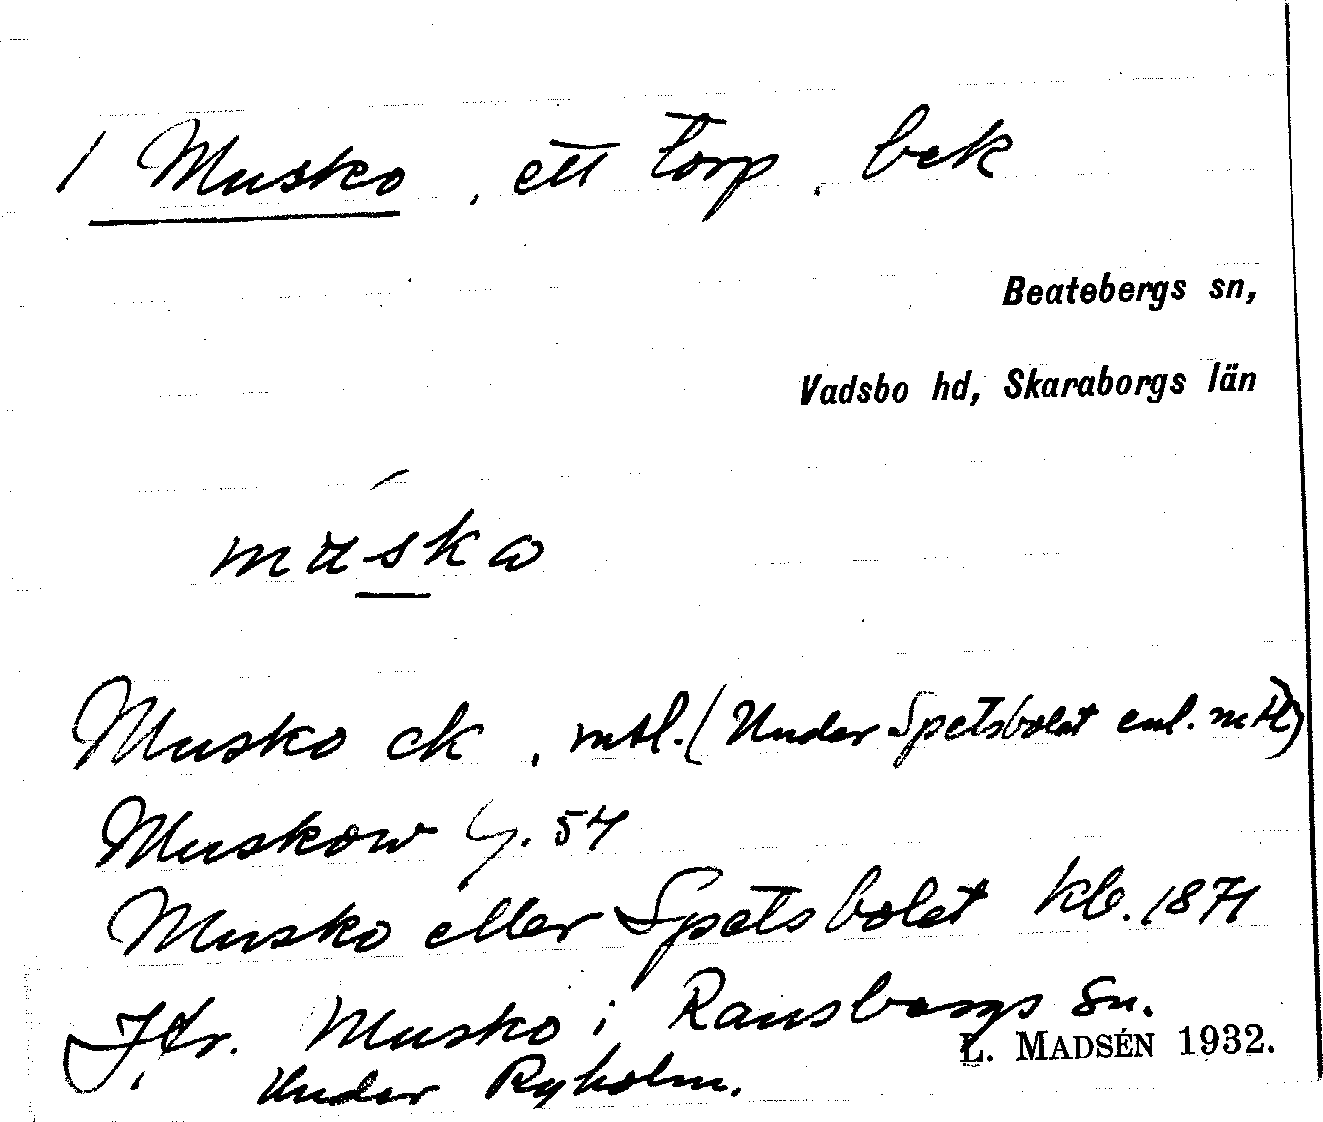 1 Musko, ett torp, bek
Beatebergs sn,
Vadsbo hd, Skaraborgs län
Musko ek, mtl. (Under Spetsbolet enl. mtl)
Muskow G. 54
Musko eller Spetsbolet kb. 1871
Jfr. Musko i Ransbergs sn.
L. MADSÉN 1932.
Under Ryholm.